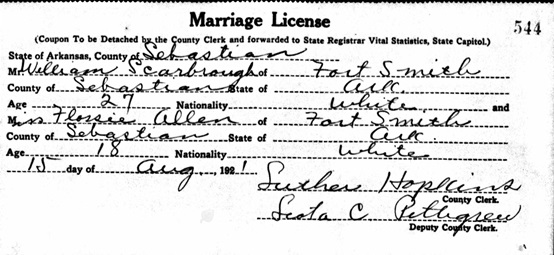 Marriage License
544
(Coupon To be Detached by the County Clerk and forwarded to State Registrar Vital Statistics, State Capitol.)
State of Arkansas, County of Sebastian
Mr William Scarbrough of Fort Smith
County of Sebastian State of Ark
Age 27 Nationality White and
Miss Flossie Allen of Fort Smith
County of Sebastian State of Ark.
Age 18 Nationality White
15 day of Aug, 1921
Luther Hopkins
County Clerk.
Leota C Pettigrew
Deputy County Clerk.